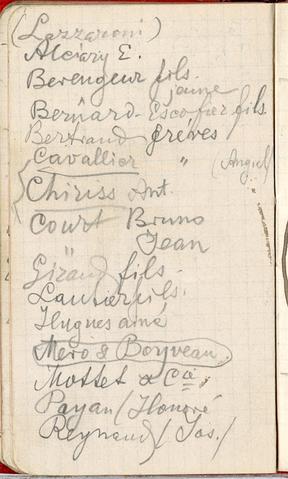 (Lazzaroni)
Alciary E.
Berengeur fils.
jeune
Bernard-Escoffier fils
Bertrand frères
Cavallier " (Angus)
Chiriss Ant.
Court Bruno
" Jean
Giraud fils.
Lautier fils.
Hugues ainé
Mero & Boyveau.
Mottet & Cie,
Payan (Honoré
Reynaud (Jos.)